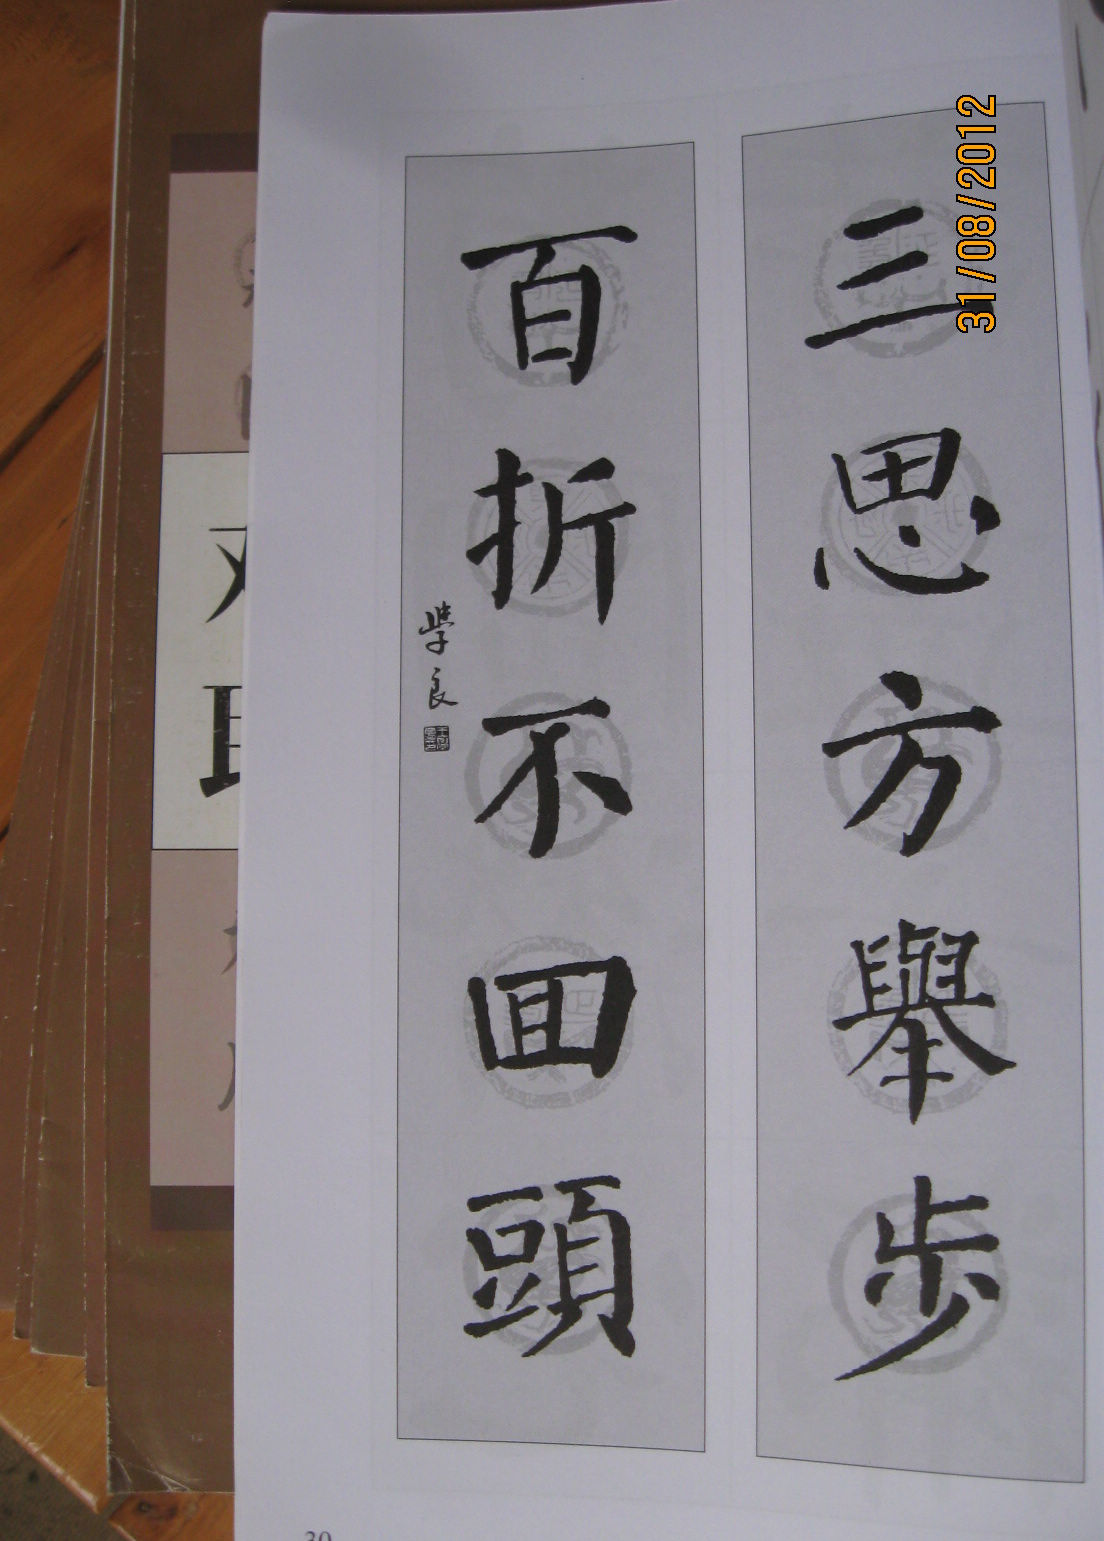 三思方舉步
百折不回頭
學良
31/08/2012
30